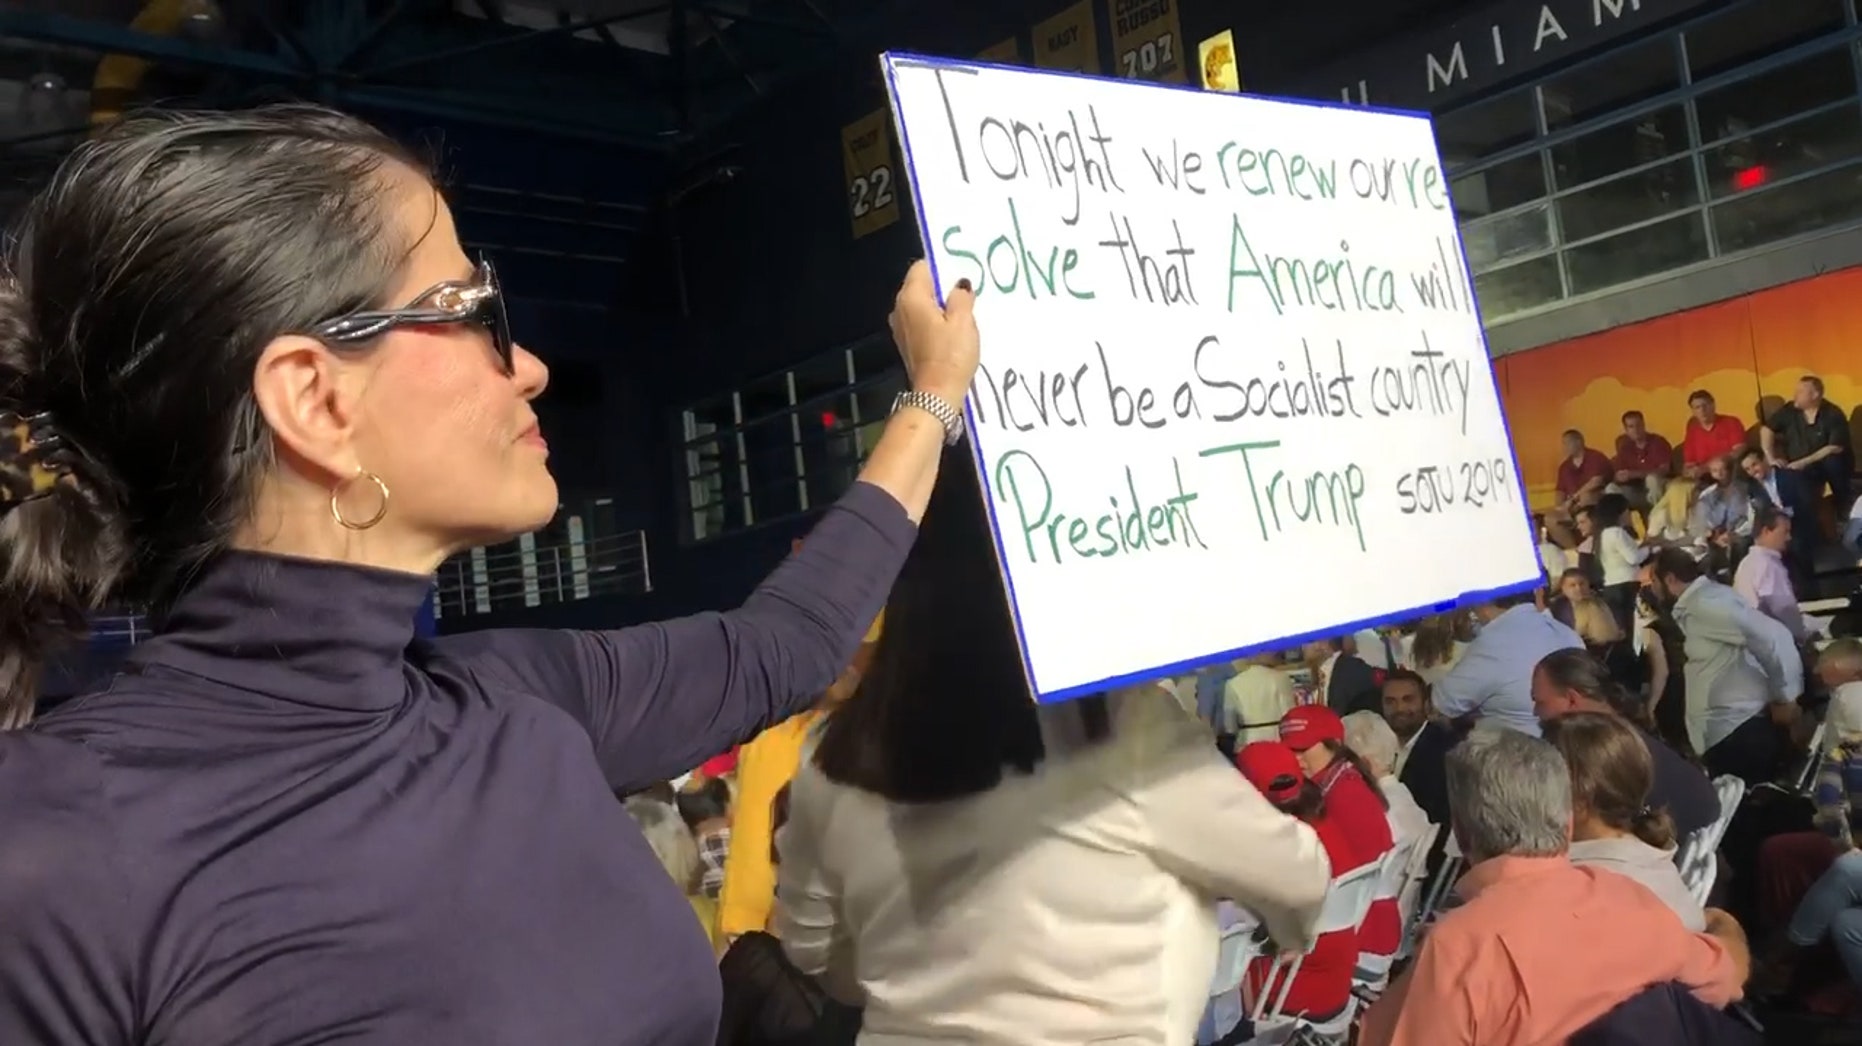 Tonight we renew our re-
solve that America will
never be a Socialist country
President Trump SOTU 2019
MIAM
RUSSO
707
22